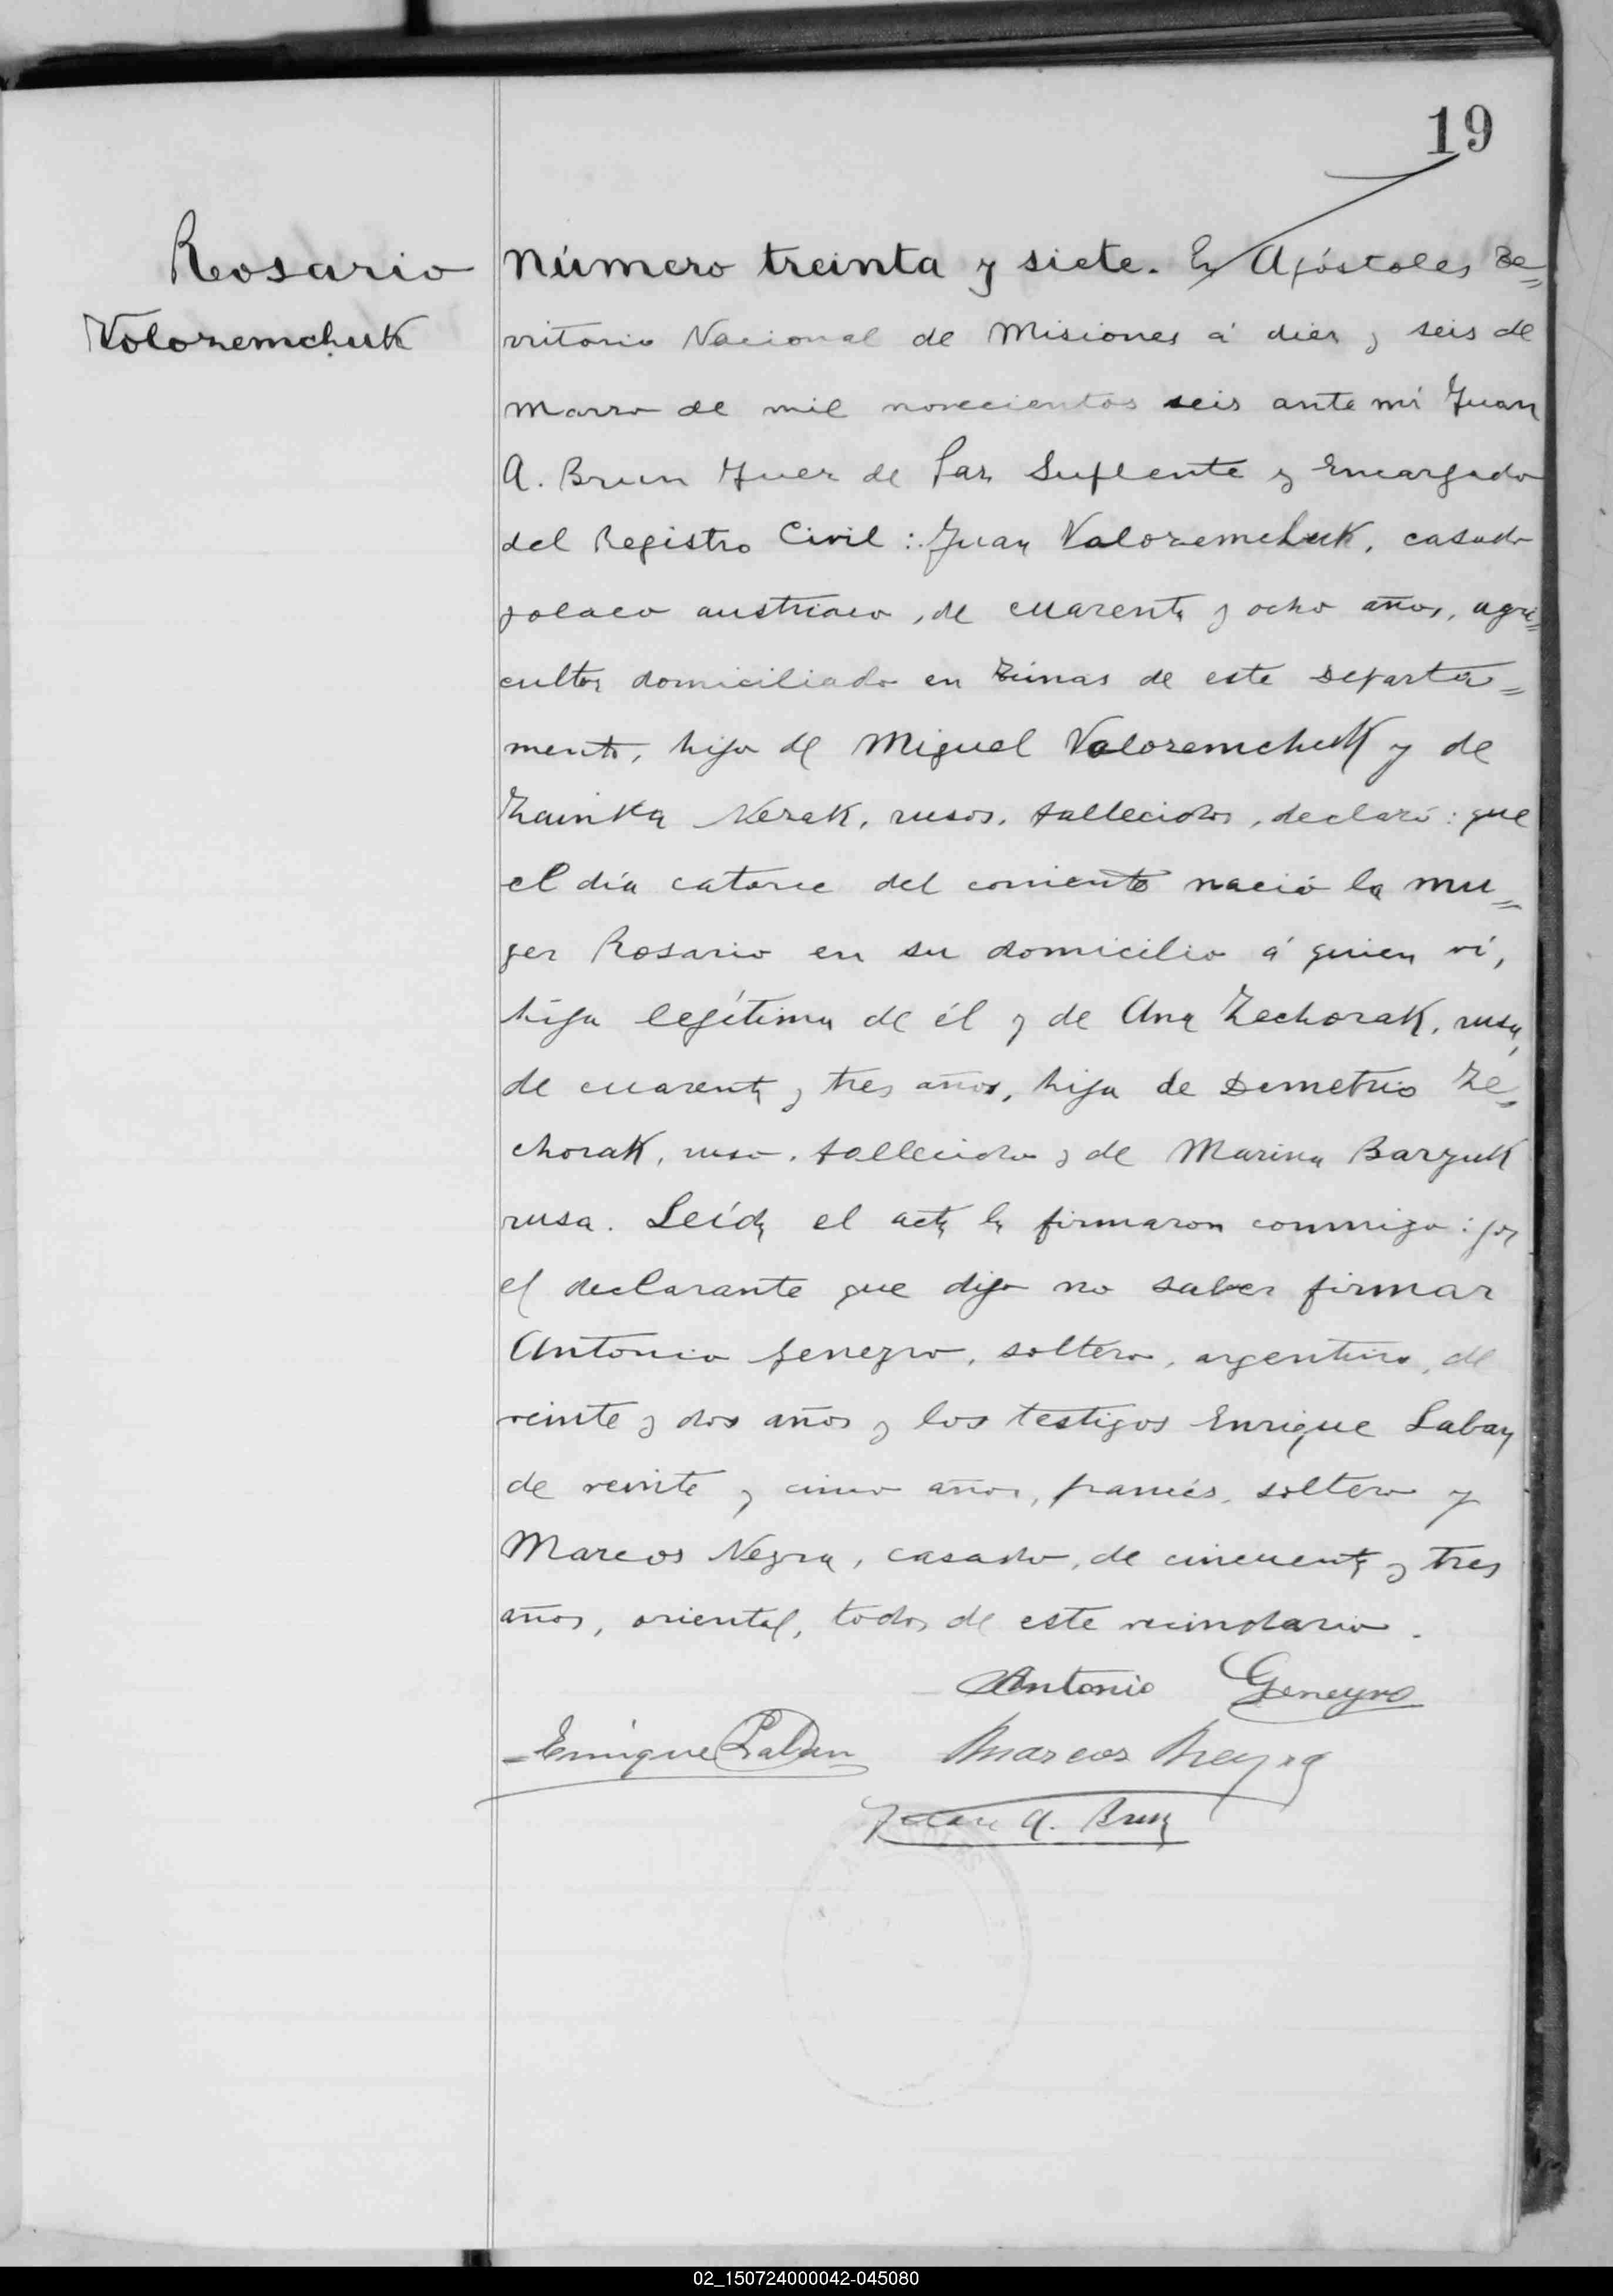 19
Rosario
Volozemchuk
Número treinta y siete. En Apóstoles Te=
rritorio Nacional de Misiones á diez y seis de
Marzo de mil novecientos seis ante mí Juan
A. Brun Juez de Paz Suplente y Encargado
del Registro Civil: Juan Valozemchuk, casado
polaco austriaco, de cuarenta y ocho años, agri=
cultor domiciliado en Ruinas de este Departa=
mento, hijo de Miguel Valozemchuk y de
Nezak, rusos, fallecidos, declaró: que
el día catorce del corriente nació la mu=
ger Rosario en su domicilio á quien ví,
hija legítima de él y de Ana Zechorak, rusa,
de cuarenta y tres años, hija de Demetrio Ze=
chorak, ruso, fallecido y de Marina Barzuk
rusa. Leída el acta la firmaron conmigo: por
el declarante que dijo no saber firmar
Antonio Geneyro, soltero, argentino, de
veinte y dos años y los testigos Enrique Laban
de veinte y cinco años, francés, soltero y
Marcos Neyra, casado, de cincuenta y tres
años, oriental, todos de este vecindario.
Antonio Geneyro
Enrique Laban Marcos Neyra
Juan A. Brun
02_150724000042-045080